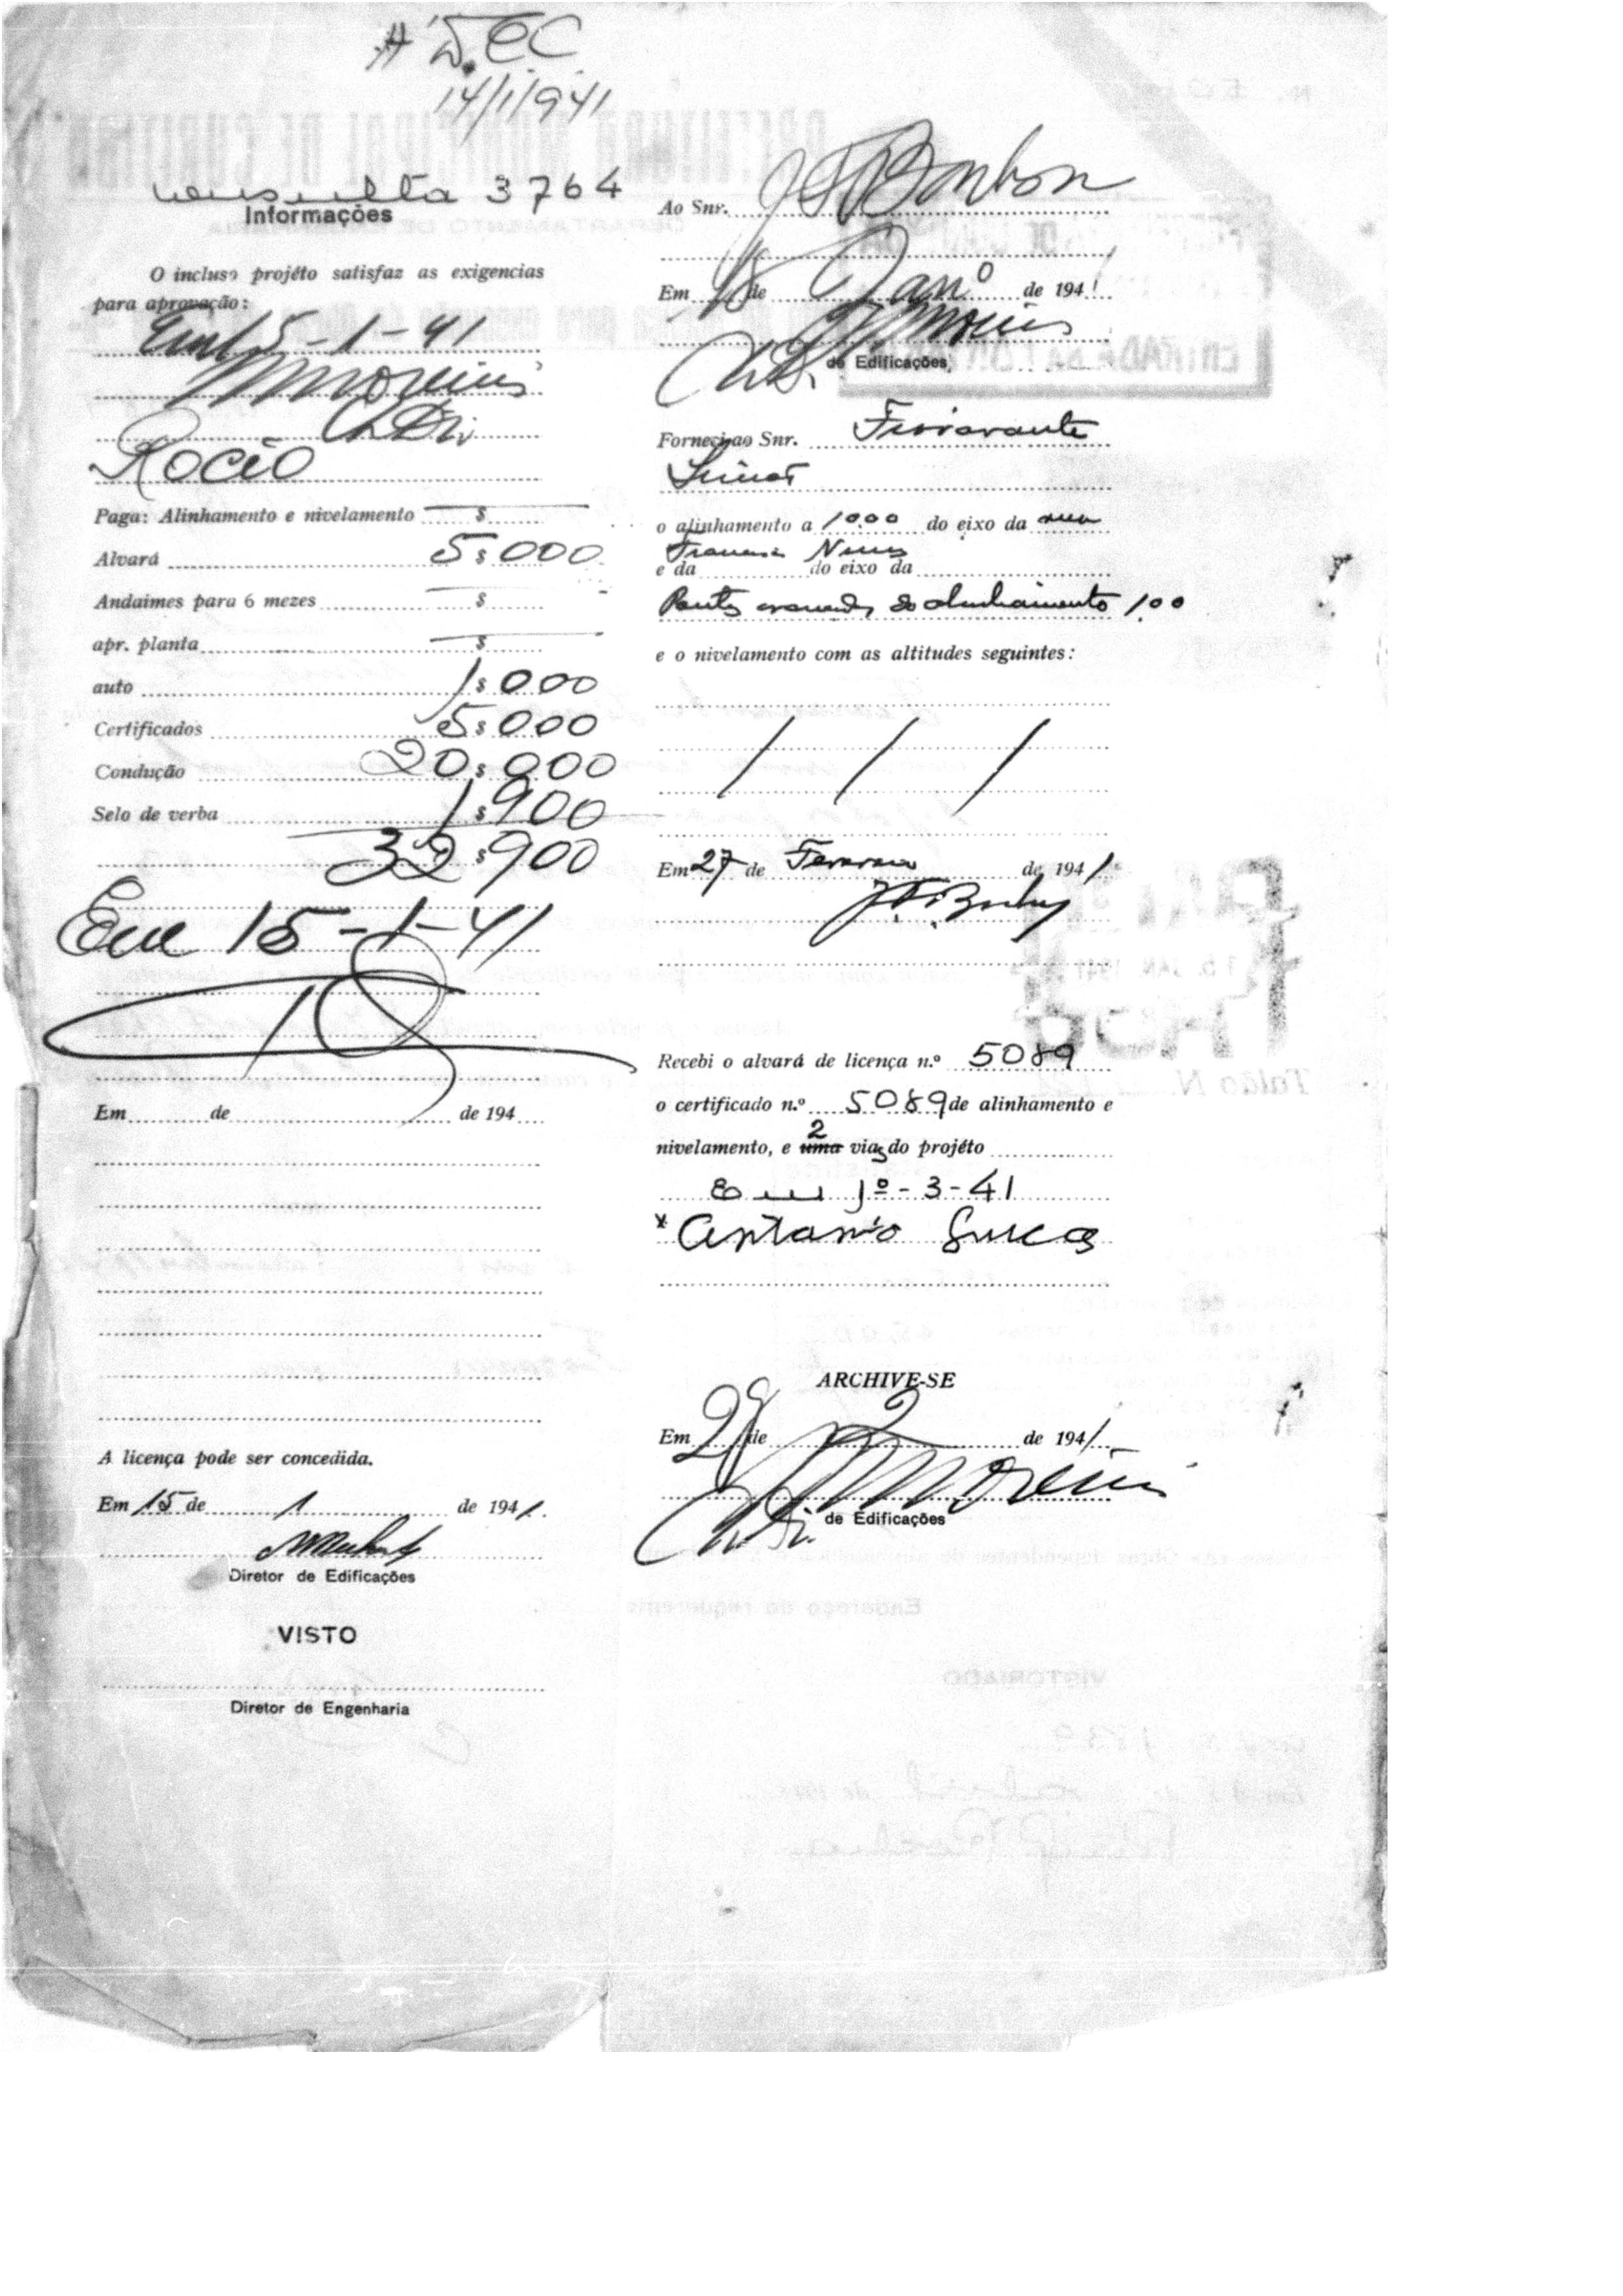 A' D.E.C.
14/1/941
consulta 3764
Informações
O incluso projéto satisfaz as exigencias
para aprovação:
Em 15-1-41
Rocio
Paga: Alinhamento e nivelamento $
Alvará 5$000
Andaimes para 6 mezes $
apr. planta $
auto 1$000
Certificados 5$000
Condução 20$000
Selo de verba 1$900
32$900
Em 15-1-41
Em de de 194
A licença pode ser concedida.
Em 15 de 1 de 1941.
Diretor de Edificações
VISTO
Diretor de Engenharia
Ao Snr.
Em de Janº de 1941
de Edificações
Forneci ao Snr. Fioravante
o alinhamento a 10.00 do eixo da rua
e da do eixo da
alinhamento 1.00
e o nivelamento com as altitudes seguintes:
/ / /
Em 27 de Fevereiro de 1941
Recebi o alvará de licença n.º 5089
o certificado n.º 5089 de alinhamento e
nivelamento, e uma 2 vias do projéto
Em 1º-3-41
Antonio
ARCHIVE-SE
Em 28 de 2 de 1941
de Edificações